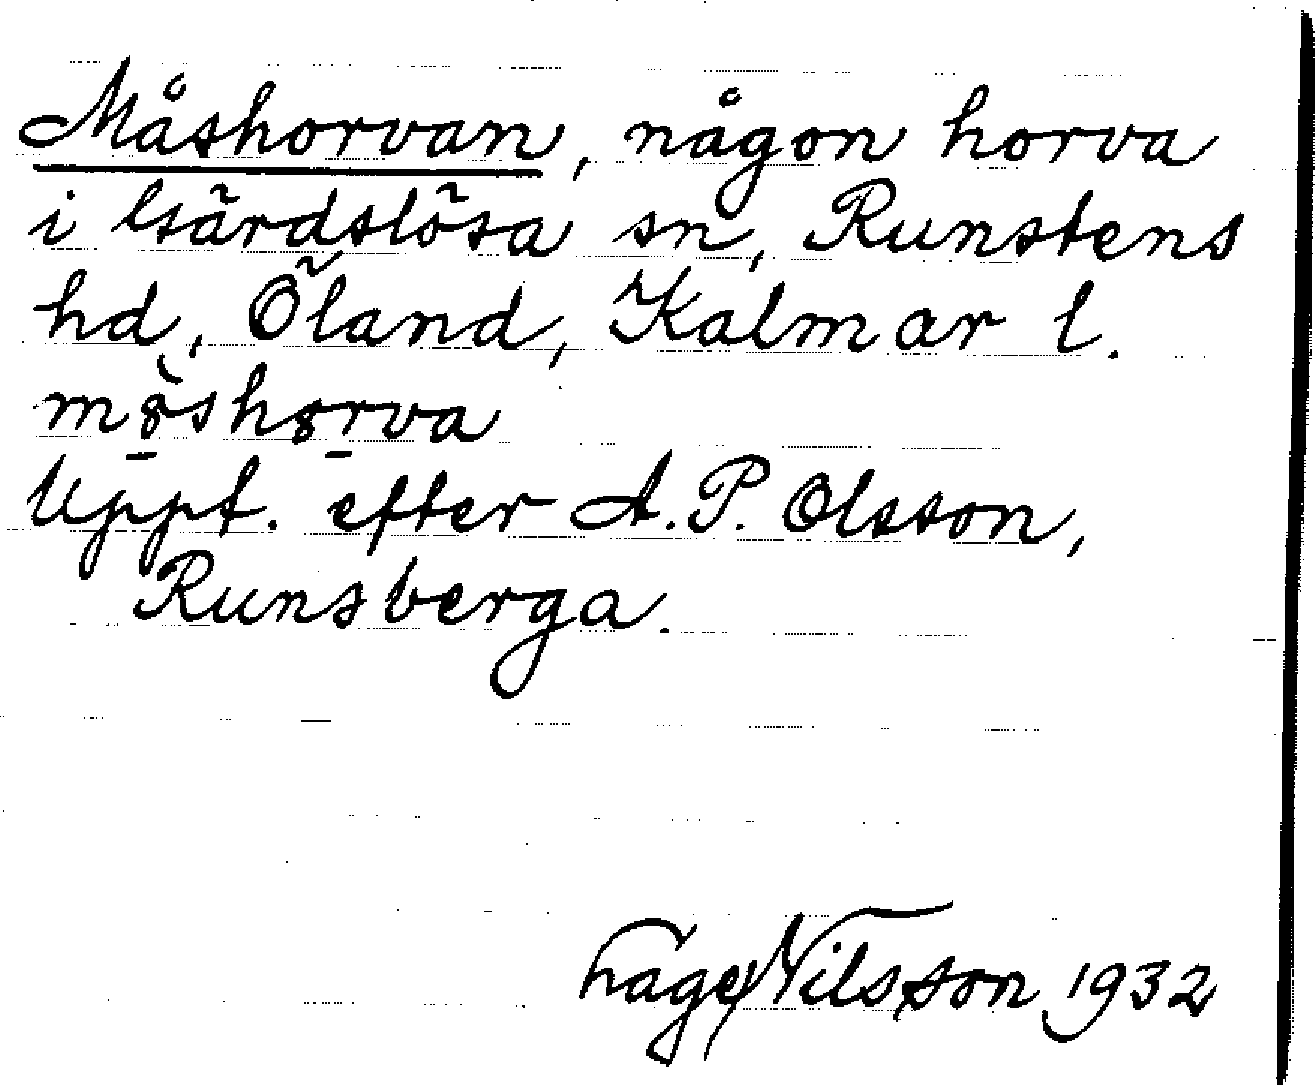 Måshorvan, någon horva
i Gärdslösa sn, Runstens
hd, Öland, Kalmar l.
Uppt. efter A. P. Olsson,
Runsberga.
Tage Nilsson 1932